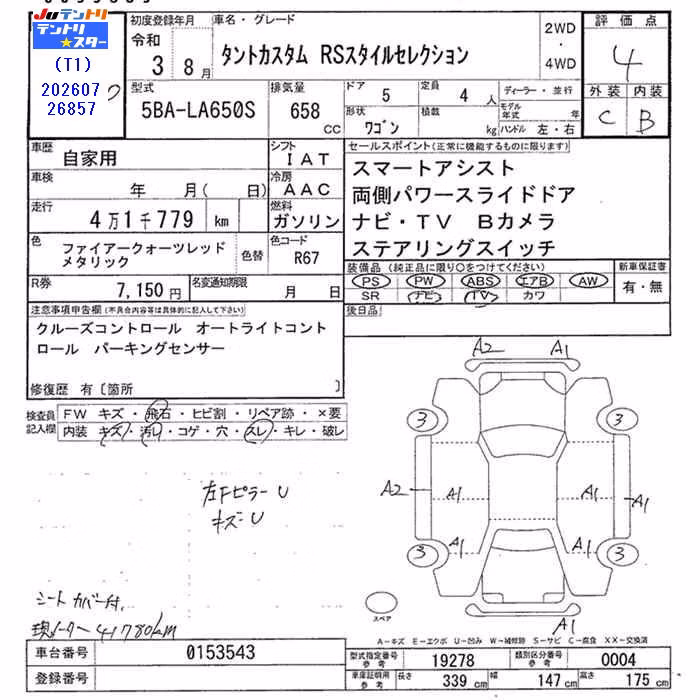 Juテントリ
テントリ
☆スター
(T1)
202607
26857
初度登録年月
令和
3 8月
車名・グレード
タントカスタム RSスタイルセレクション
2WD
・
4WD
評価点
4
外装 内装
C B
型式
5BA-LA650S
排気量
658
CC
ドア
5
定員
4 人
形状
ワゴン
積載
kg
ディーラー・並行
モデル年式 年
ハンドル 左・右
車歴
自家用
シフト
IAT
車検
年 月( 日)
冷房
AAC
走行
4万1千779 km
燃料
ガソリン
色
ファイアークォーツレッド
メタリック
色替
色コード
R67
R券
7,150円
名変通知期限
月 日
セールスポイント(正常に機能するものに限ります)
スマートアシスト
両側パワースライドドア
ナビ・TV Bカメラ
ステアリングスイッチ
装備品(純正品に限り○をつけてください)
PS PW ABS エアB AW
SR ナビ TV カワ
新車保証書
有・無
後日品
注意事項申告欄(不具合内容等は具体的に記入して下さい)
クルーズコントロール オートライトコント
ロール パーキングセンサー
修復歴 有〔箇所 〕
検査員
記入欄
FW キズ・飛石・ヒビ割・リペア跡・×要
内装 キズ・汚レ・コゲ・穴・スレ・キレ・破レ
左Fピラー U
キズ U
シートカバー付.
現メーター 41780km
A2 A1
3 3
A2 A1 A1 A1
A1 A1
3 3
A1
スペア
A-キズ E-エクボ U-凹み W-補修跡 S-サビ C-腐食 XX-交換済
車台番号
0153543
登録番号
型式指定番号
参考
19278
類別区分番号
参考
0004
車庫証明用
参考
長さ 339 cm
幅 147 cm
高さ 175 cm